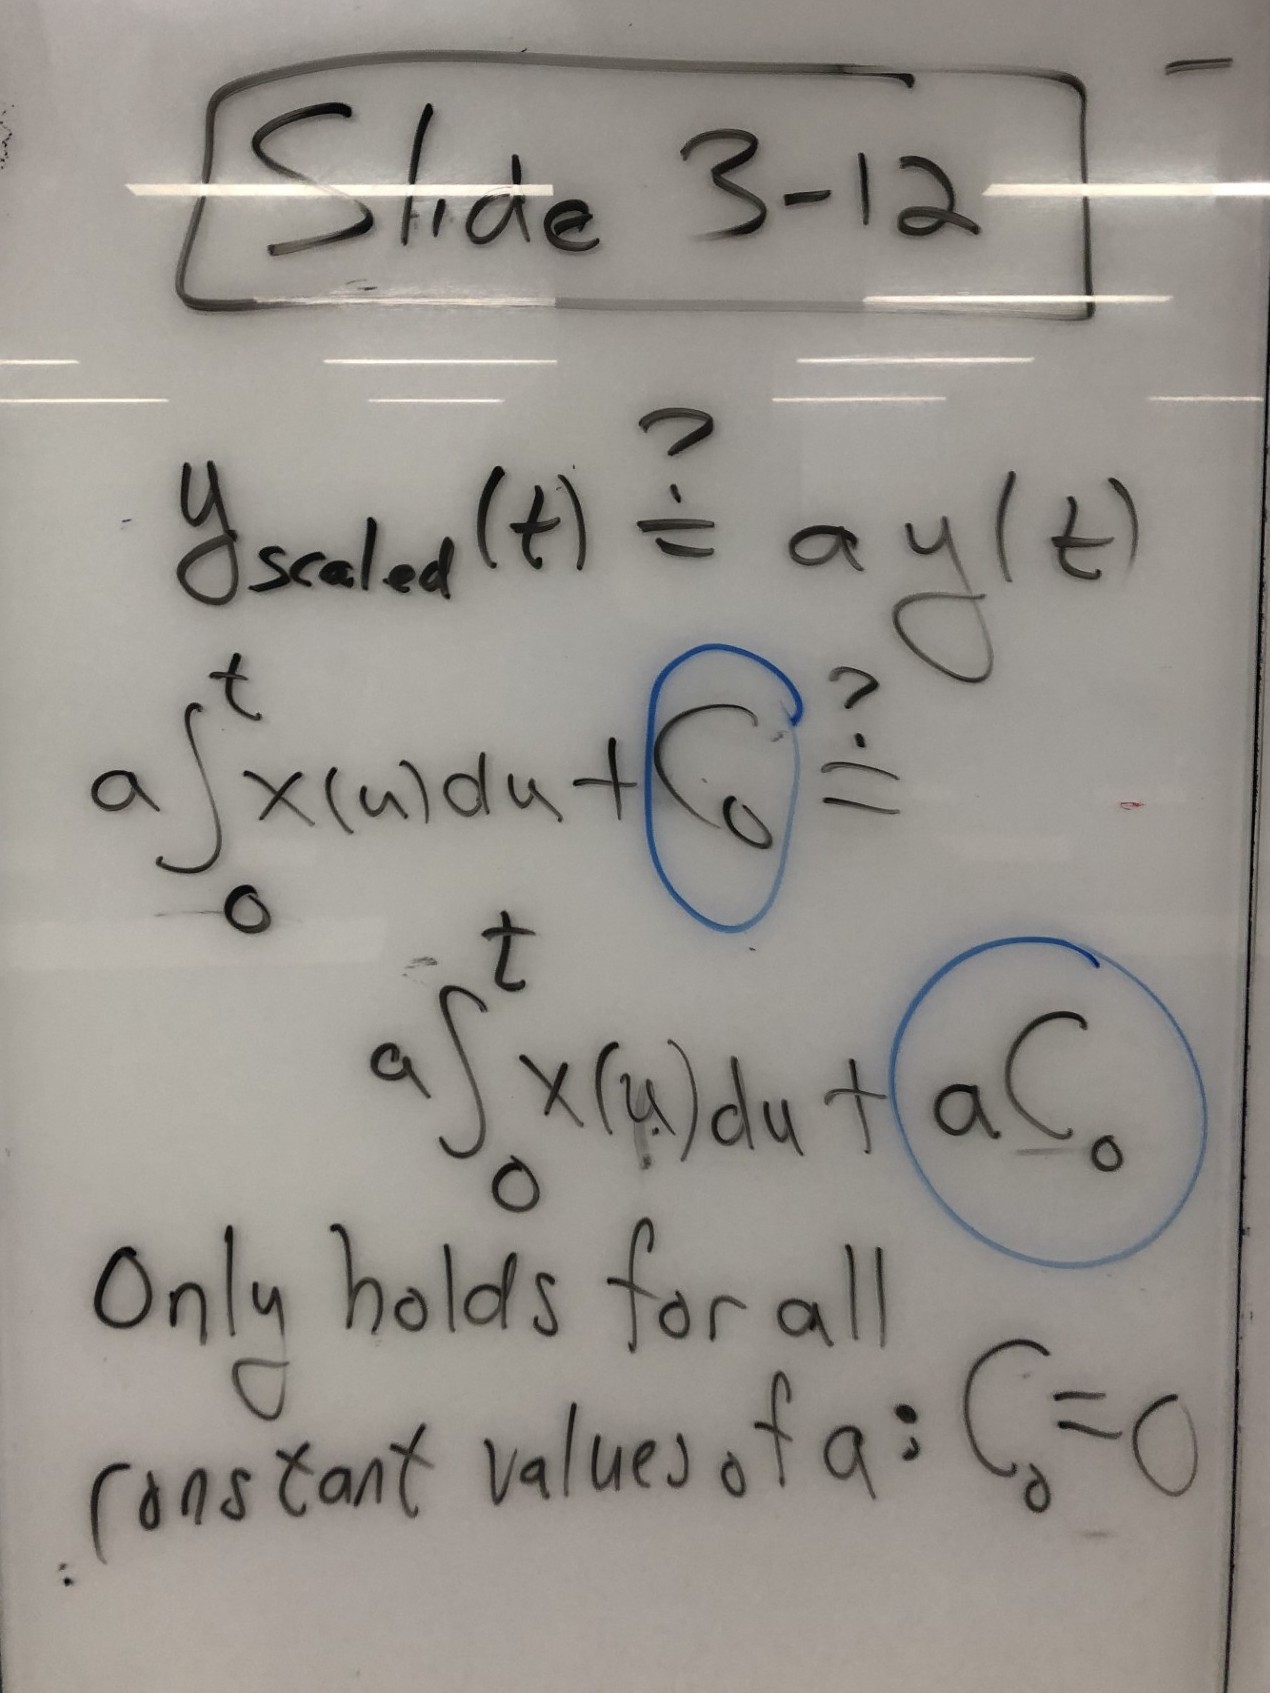 Slide 3-12
y_scaled(t) ≟ a y(t)
a ∫_0^t x(u)du + C_0 ≟
a ∫_0^t x(u)du + a C_0
Only holds for all
constant values of a: C_0 = 0